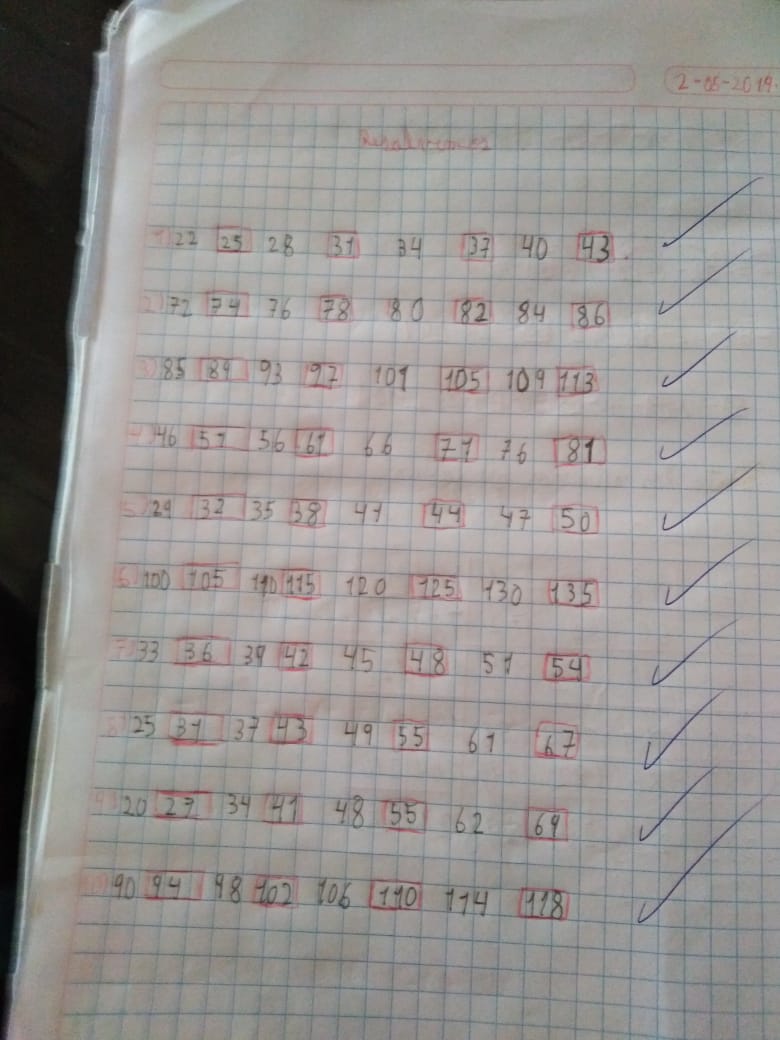 2-05-2019.
Resolvemos
1) 22 25 28 31 34 37 40 43.
2) 72 74 76 78 80 82 84 86
3) 85 89 93 97 101 105 109 113
4) 46 51 56 61 66 71 76 81
5) 29 32 35 38 41 44 47 50
6) 100 105 110 115 120 125 130 135
7) 33 36 39 42 45 48 51 54
8) 25 31 37 43 49 55 61 67
9) 20 27 34 41 48 55 62 69
10) 90 94 98 102 106 110 114 118